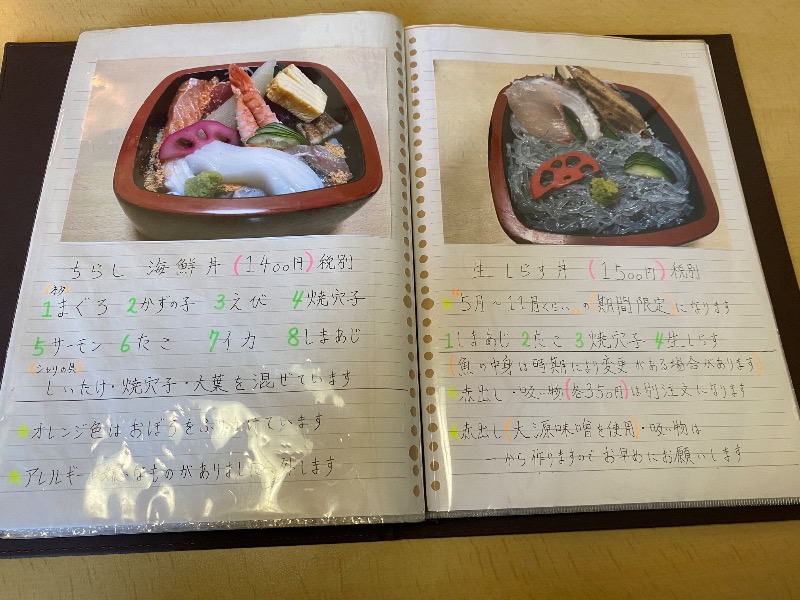 ちらし 海鮮丼 (1400円) 税別
(ネタ)
1まぐろ 2かずの子 3えび 4焼穴子
5サーモン 6たこ 7イカ 8しまあじ
(シャリの具)
しいたけ・焼穴子・大葉を混ぜています
オレンジ色はおぼろをふりかけています
アレルギー なものがありまし します
生しらす丼 (1500円) 税別
"5月〜11月くらい"の"期間限定"になります
1しまあじ 2たこ 3焼穴子 4生しらす
(魚の中身は時期により変更がある場合があります)
赤出し・吸い物(各350円)は別注文になります
赤出し(大源味噌を使用)・吸い物は
一から作りますのでお早めにお願いします